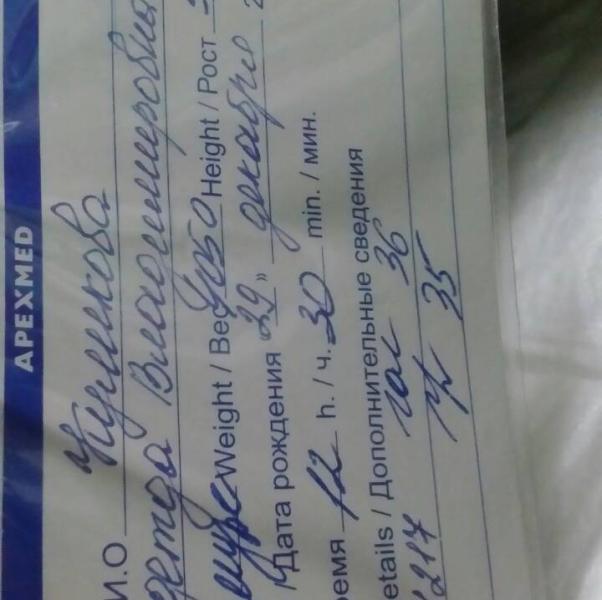 APEXMED
И.О Куликова
Владимировна
Weight / Вес 4050 Height / Рост
Дата рождения 29 " декабря 2
ремя 12 h. / ч. 30 min. / мин.
etails / Дополнительные сведения
217 гол 36
гр 35